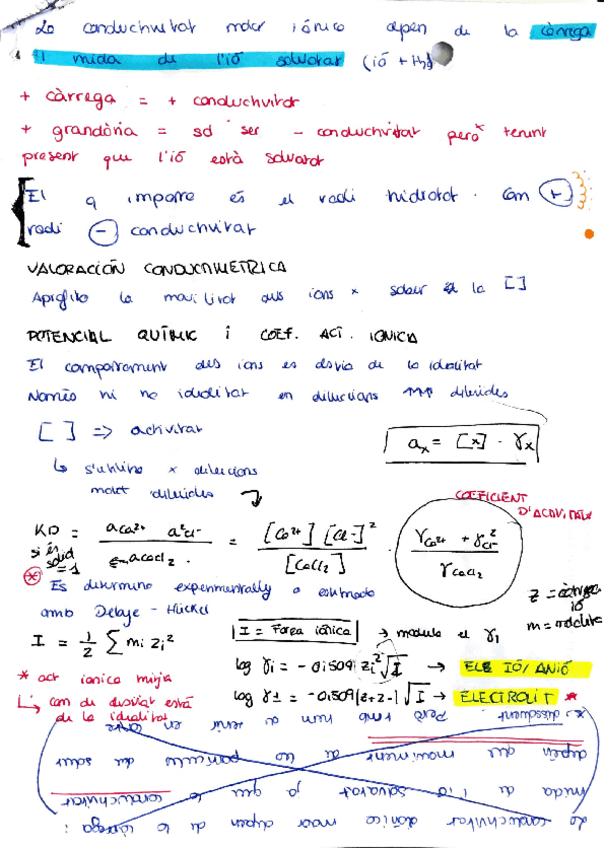 La conductivitat molar iónica depen de la càrrega
i mida de l'ió solvatat (ió + H₂O)
+ càrrega = + conductivitat
+ grandària = sol ser - conductivitat però tenint
present que l'ió està solvatat
El q importa és el radi hidratat. Com (+)
radi (-) conductivitat
VALORACIÓN CONDUCTIMETRICA
Aprofito la movilitat dels ions x saber la []
POTENCIAL QUÍMIC i COEF. ACT. IONICA
El comportament dels ions es desvia de la idealitat
Només hi ha idealitat en dilucions ↑↑↑ diluides
[ ] => activitat
aₓ = [x] · γₓ
↳ s'utilitza x dilucions
molt diluides
COEFICIENT
D'ACTIVITAT
KD = aCa²⁺ a²Cl⁻ / aCaCl₂ = [Ca²⁺] [Cl⁻]² / [CaCl₂] · γCa²⁺ + γCl⁻² / γCaCl₂
si és
solid
= 1
* Es determina experimentally o estimada
amb Debye - Hückel
z = càrrega
ió
m = molalitat
I = 1/2 ∑ mi zi²
I = Força iònica → modula el γ₁
log γi = -0,509 zi² √I → ELS IÓ/ANIÓ
* act ionica mitja
log γ± = -0,509 |z+z-| √I → ELECTROLIT *
↳ com de desviat està
de la idealitat
La conductivitat iónica molar depen de la càrrega i
mida de l'ió solvatat ja que la conductivitat
depèn del moviment de les particules del
dissolvent. Però també hem de tenir en